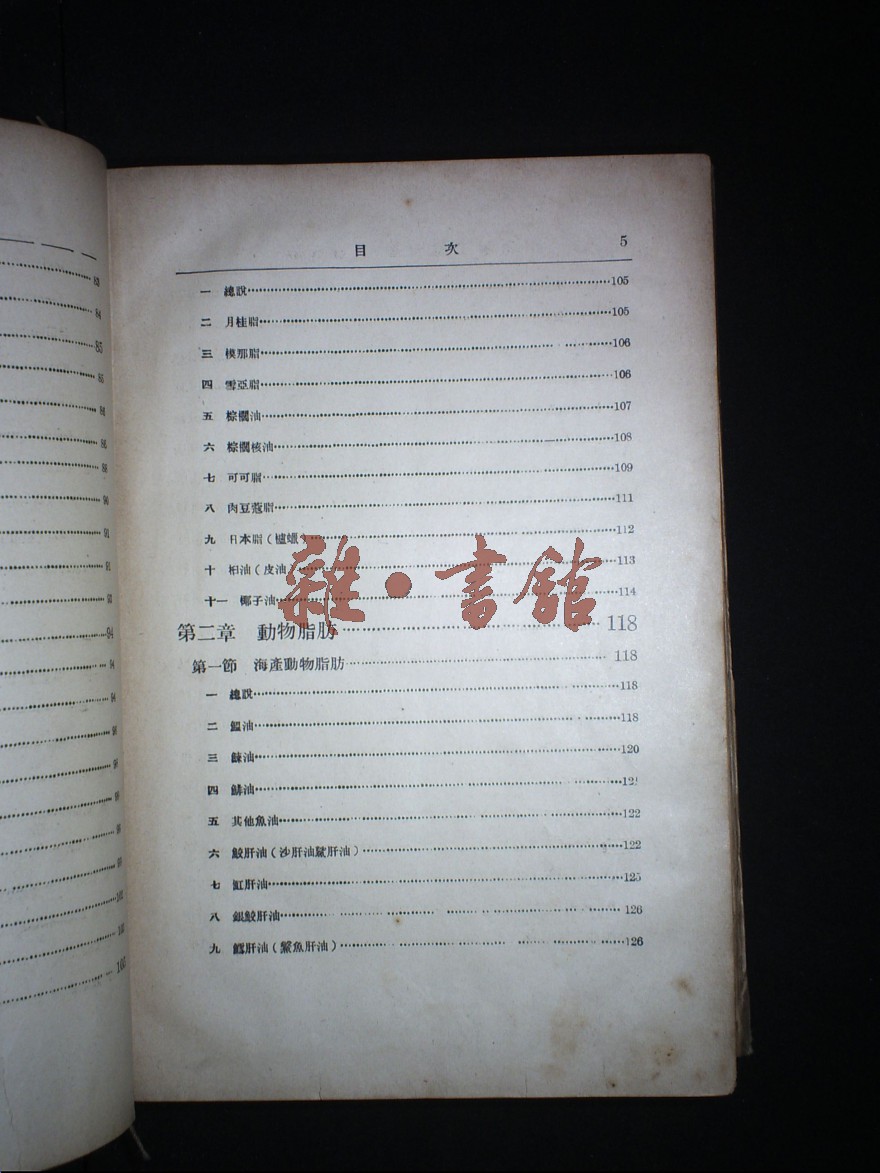 83
84
85
85
88
88
90
91
91
94
94
100
目 次 5
一 總說 105
二 月桂脂 105
三 模那脂 106
四 雪亞脂 106
五 棕櫚油 107
六 棕櫚核油 108
七 可可脂 109
八 肉豆蔻脂 111
九 日本脂（櫨蠟） 112
十 桕油（皮油） 113
十一 椰子油 114
第二章 動物脂肪 118
第一節 海產動物脂肪 118
一 總說 118
二 鰮油 118
三 鰊油 120
四 油
五 其他魚油 122
六 鮫肝油（沙肝油鯊肝油） 122
七 肝油 125
八 銀鮫肝油 126
九 鱈肝油（鰵魚肝油） 126
雜·書館